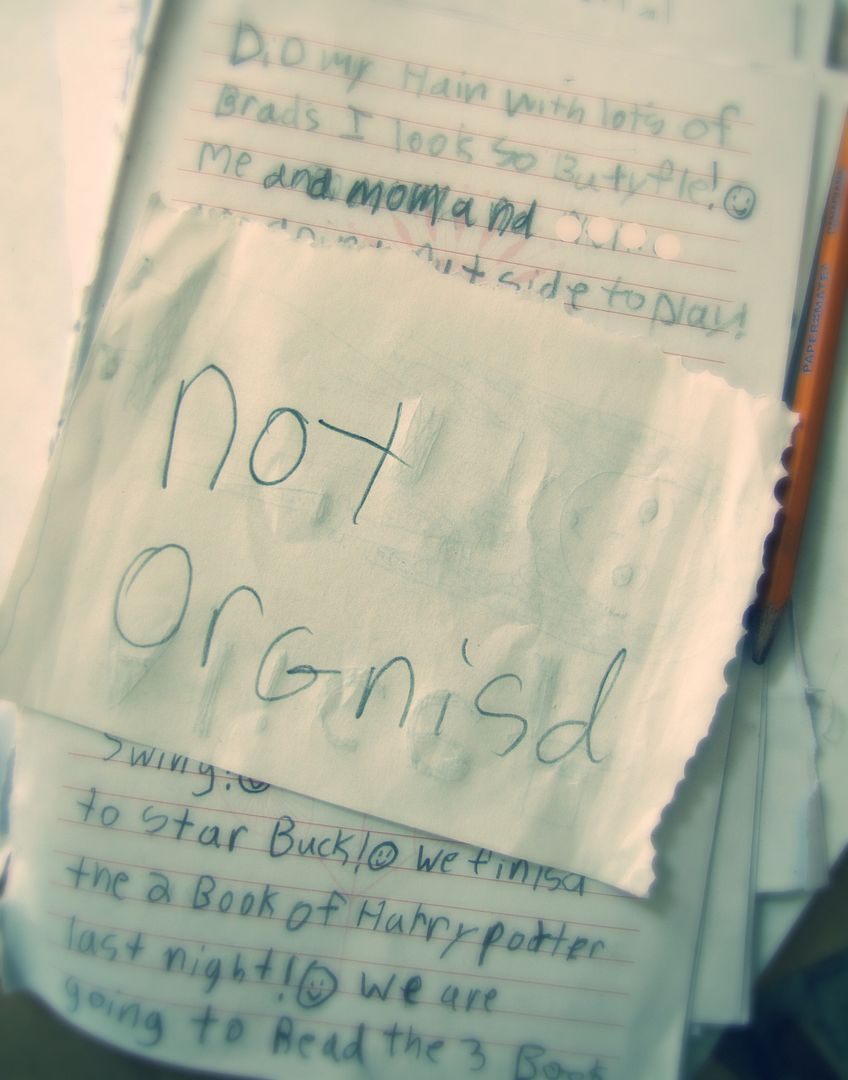 DiD my Hair with lots of
Brads I look so Butyfle!
me and mom and
out side to play!
noT
OrGnisd
swing!
to star Buck! we finisd
the 2 Book of Harry potter
last night! we are
going to Read the 3 Book
PAPER MATE